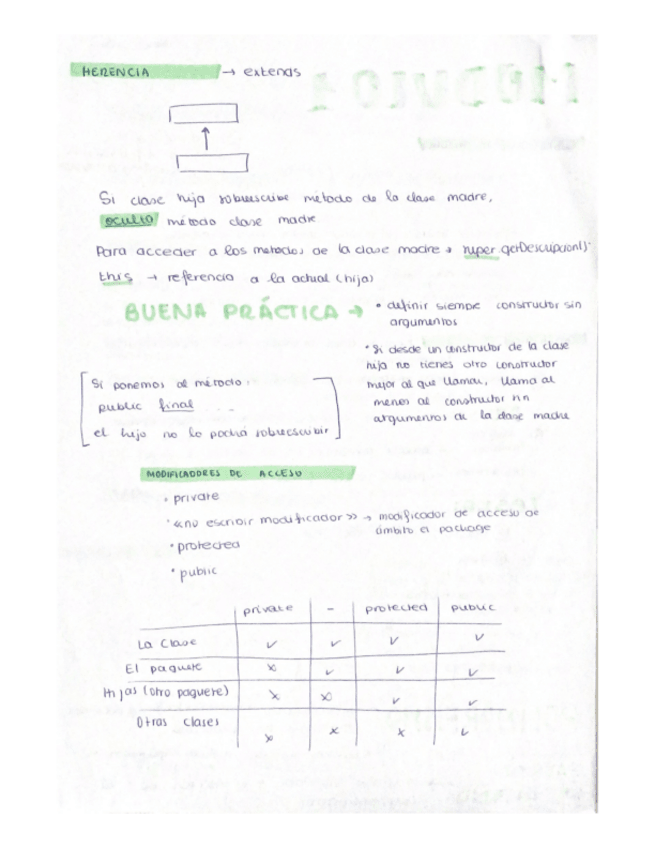 HERENCIA → extends
Si clase hija sobreescribe método de la clase madre,
oculto método clase madre
Para acceder a los metodos de la clase madre → super.getDescripcion();
this → referencia a la actual (hija)
BUENA PRÁCTICA →
• definir siempre constructor sin
argumentos
• Si desde un constructor de la clase
hija no tienes otro constructor
mejor al que llamar, llama al
menos al constructor sin
argumentos de la clase madre
Si ponemos al método:
public final ...
el hijo no lo podrá sobreescribir
MODIFICADORES DE ACCESO
• private
• «no escribir modificador» → modificador de acceso de
ámbito el package
• protected
• public
private - protected public
La Clase ✓ ✓ ✓ ✓
El paquete x ✓ ✓ ✓
Hijas (otro paquete) x x ✓ ✓
Otras clases x x x ✓